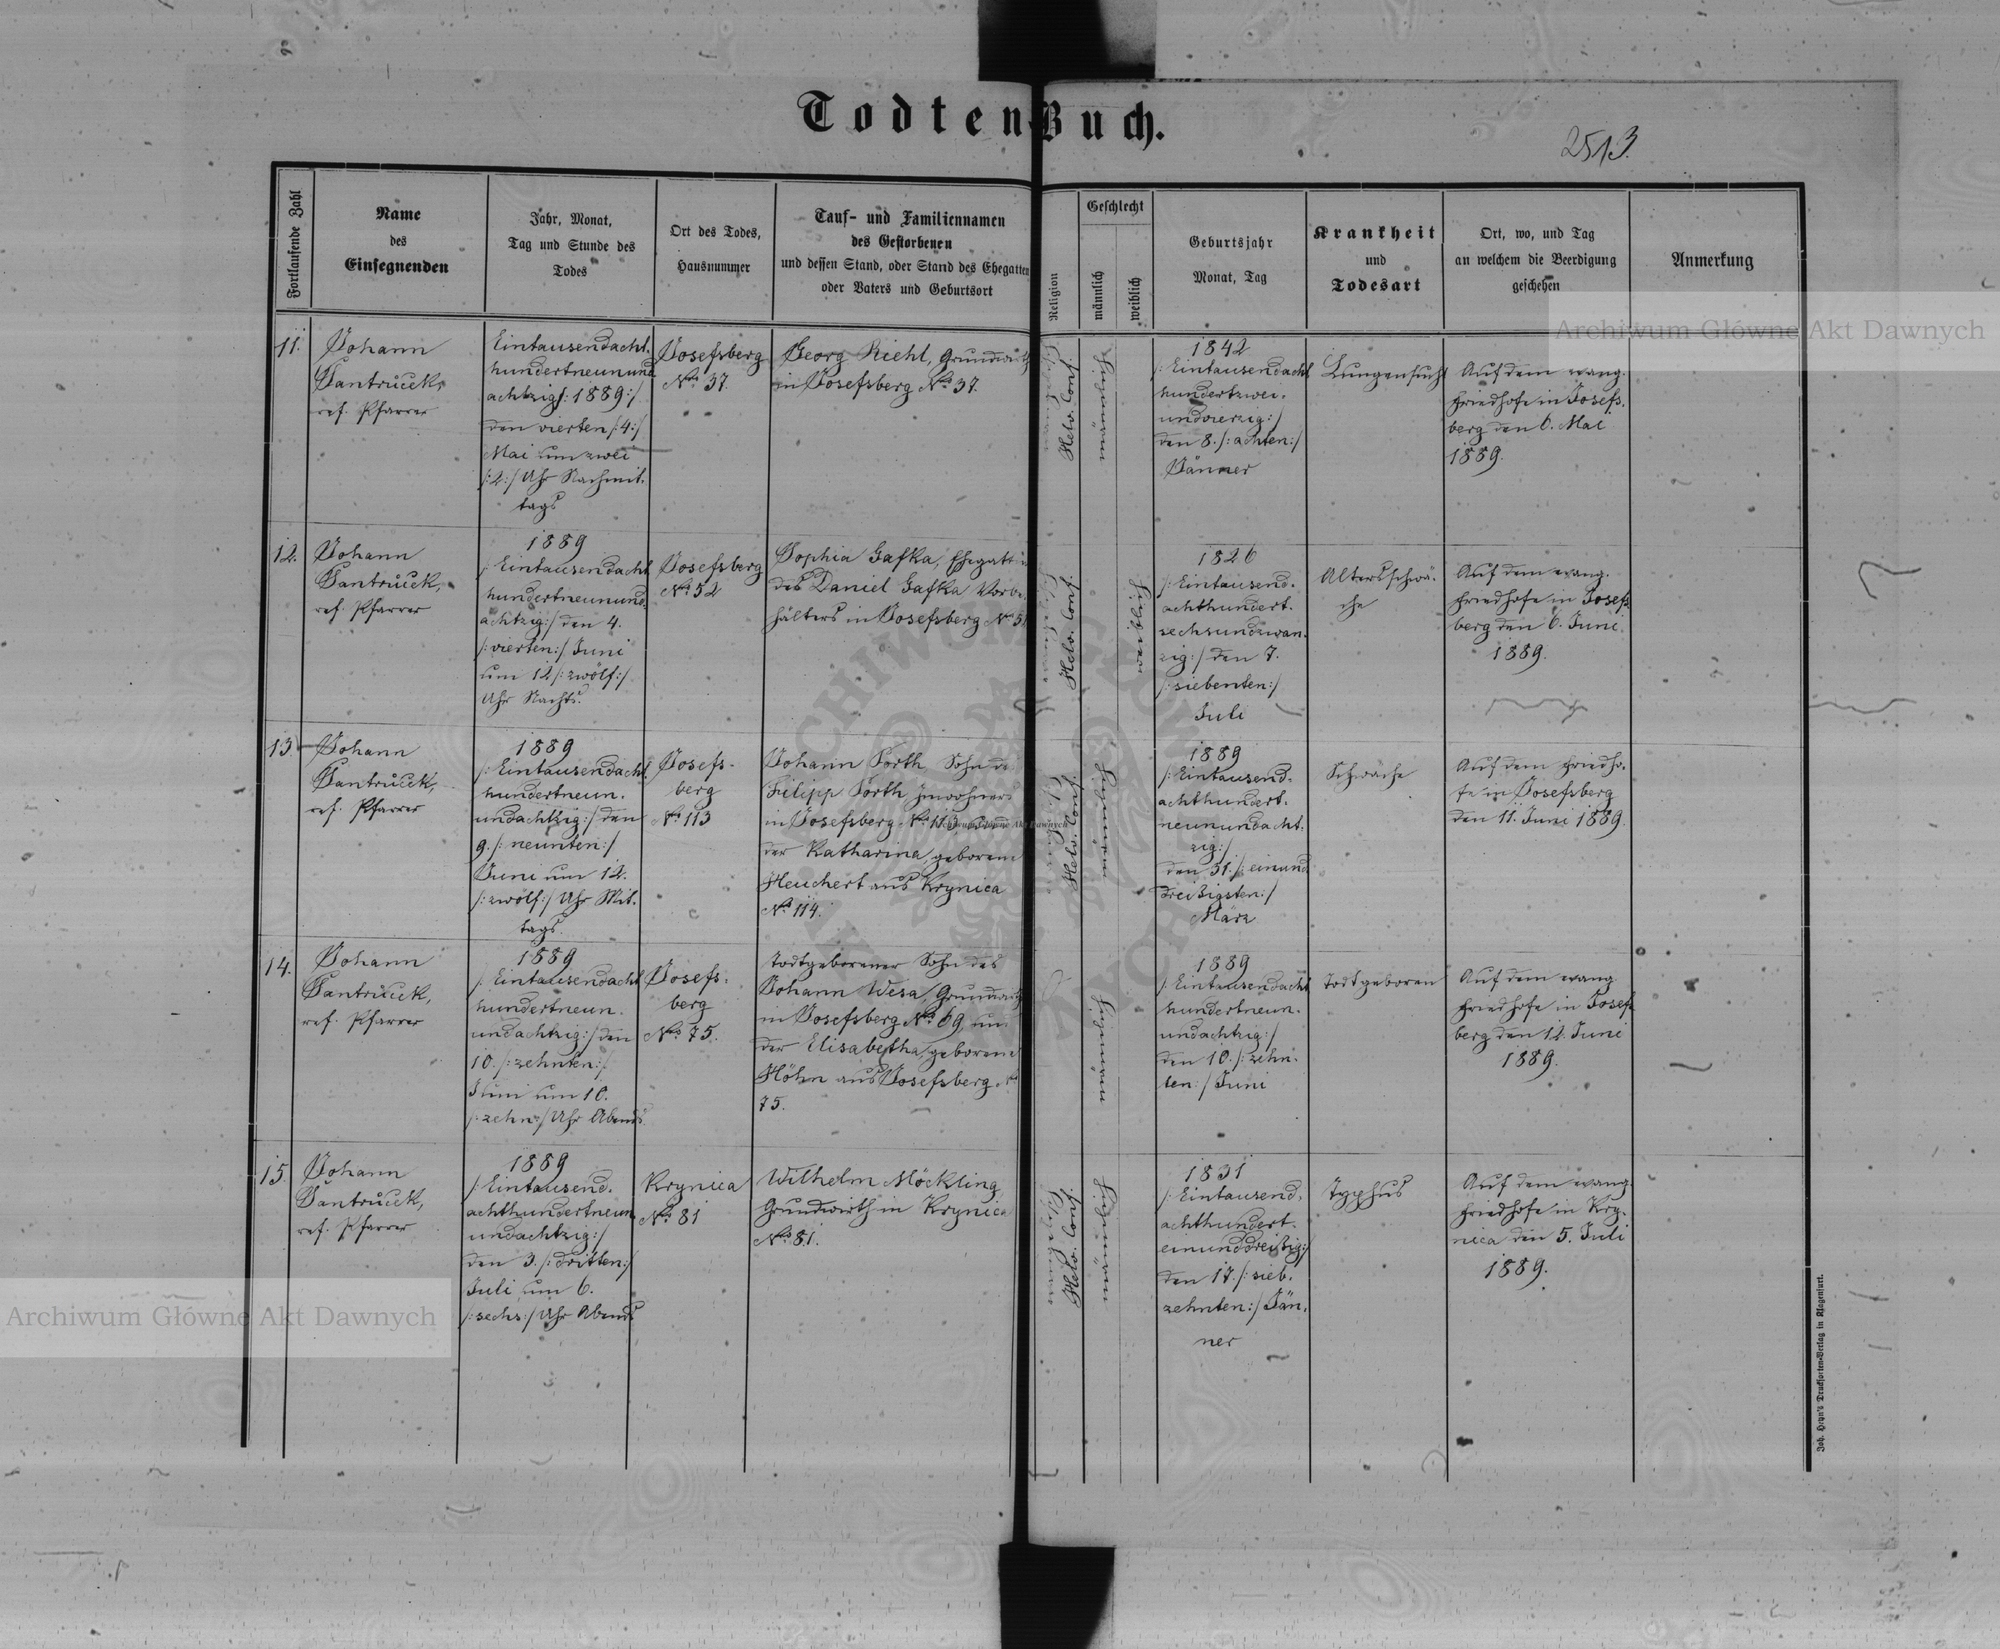 Todten-Buch.
2513.
Fortlaufende Zahl
Name
des
Einsegnenden
Jahr, Monat,
Tag und Stunde des
Todes
Ort des Todes,
Hausnummer
Tauf- und Familiennamen
des Gestorbenen
und dessen Stand, oder Stand des Ehegatten
oder Vaters und Geburtsort
Religion
Geschlecht
männlich
weiblich
Geburtsjahr
Monat, Tag
Krankheit
und
Todesart
Ort, wo, und Tag
an welchem die Beerdigung
geschehen
Anmerkung
11.
Johann
Santrůček,
ref. Pfarrer
Eintausendacht-
hundertneunund
achtzig /:1889:/
den vierten /:4:/
Mai um zwei
/:2:/ Uhr Nachmit-
tags
Josefsberg
No. 37
Georg Riehl, Grundwirth
in Josefsberg No. 37.
Helv. Conf.
männlich
1842
/:Eintausendacht
hundertzwei-
undvierzig:/
den 8. /:achten:/
Jänner
Lungensucht
Auf dem evang.
Friedhofe in Josefs-
berg den 6. Mai
1889.
12.
Johann
Santrůček,
ref. Pfarrer
1889
/:Eintausendacht
hundertneunund-
achtzig:/ den 4.
/:vierten:/ Juni
um 12 /:zwölf:/
Uhr Nachts.
Josefsberg
No. 52
Sophia Gafka, Ehegattin
des Daniel Gafka Vorbe-
hälters in Josefsberg No. 5
Helv. Conf.
weiblich
1826
/:Eintausend-
achthundert-
sechsundzwan-
zig:/ den 7.
/:siebenten:/
Juli
Altersschwä-
che
Auf dem evang.
Friedhofe in Josefs
berg den 6. Juni
1889.
13.
Johann
Santrůček,
ref. Pfarrer
1889
/:Eintausendacht
hundertneun-
undachtzig:/ den
9. /:neunten:/
Juni um 12.
/:zwölf:/ Uhr Mit-
tags.
Josefs-
berg
No. 113
Johann Porth Sohn de
Filipp Porth Inwohners
in Josefsberg No. 113 und
der Katharina geborene
Heuchert aus Krynica
No. 114.
Helv. Conf.
männlich
1889
/:Eintausend-
achthundert-
neunundacht-
zig:/
den 31. /:einund
dreißigsten:/
März
Schwäche
Auf dem Friedho-
fe in Josefsberg
den 11. Juni 1889.
14.
Johann
Santrůček,
ref. Pfarrer
1889
/:Eintausendacht
hundertneun-
undachtzig:/ den
10. /:zehnten:/
Juni um 10.
/:zehn:/ Uhr Abends
Josefs-
berg
No. 75.
Todtgeborener Sohn des
Johann Wesa, Grundwirth
in Josefsberg No. 69 un
der Elisabetha geborene
Höhn aus Josefsberg No
75.
männlich
1889
/:Eintausendacht
hundertneun-
undachtzig:/
den 10. /:zehn-
ten:/ Juni
Todtgeboren
Auf dem evang
Friedhofe in Josefs
berg den 12. Juni
1889.
15.
Johann
Santrůček,
ref. Pfarrer
1889
/:Eintausend-
achthundertneun
undachtzig:/
den 3. /:dritten:/
Juli um 6.
/:sechs:/ Uhr Abends
Krynica
No. 81
Wilhelm Möckling
Grundwirth in Krynica
No. 81.
Helv. Conf.
männlich
1831
/:Eintausend-
achthundert-
einunddreißig:/
den 17. /:sieb-
zehnten:/ Jän-
ner
Typhus
Auf dem evang.
Friedhofe in Kry-
nica den 5. Juli
1889.
Joh. Heyn's Drucksorten-Verlag in Klagenfurt.
Archiwum Główne Akt Dawnych
Archiwum Główne Akt Dawnych
Archiwum Główne Akt Dawnych